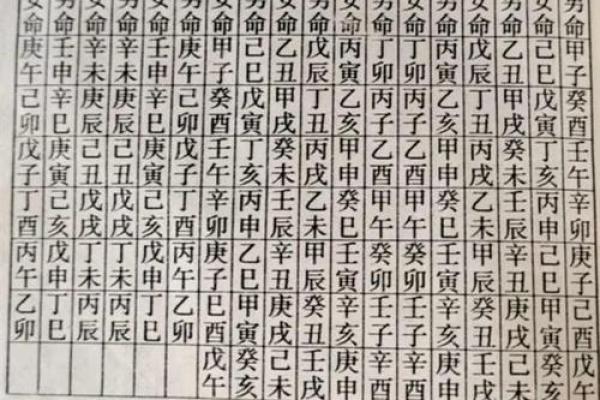 男命甲子癸酉壬午辛卯庚子己酉戊午
女命己巳戊寅丁亥丙申乙巳甲寅癸亥
男命乙丑甲戌癸未壬辰辛丑庚戌己未
女命戊辰丁丑丙戌乙未甲辰癸丑壬戌
男命丙寅乙亥甲申癸巳壬寅辛亥庚申
女命丁卯丙子乙酉甲午癸卯壬子辛酉
男命丁卯丙子乙酉甲午癸卯壬子辛酉
女命丙寅乙亥甲申癸巳壬寅辛亥庚申
男命戊辰丁丑丙戌乙未甲辰癸丑壬戌
女命乙丑甲戌癸未壬辰辛丑庚戌己未
男命己巳戊寅丁亥丙申乙巳甲寅癸亥
女命甲子癸酉壬午辛卯庚子巳酉戊午
男命庚午己卯戊子丁酉丙午乙卯
女命壬申辛巳庚寅己亥戊申丁巳
男命辛未庚辰己丑戊戌丁未丙辰
女命辛未庚辰己丑戊戌丁未丙辰
男命壬申辛巳庚寅己亥戊申丁巳
女命庚午己卯戊子丁酉丙午乙卯